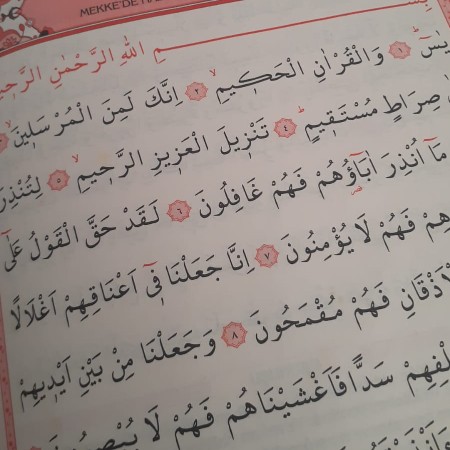 MEKKE'DE
بِسْمِ اللّٰهِ الرَّحْمٰنِ الرَّحِيمِ
يٰسٓ ۚ ١ وَالْقُرْاٰنِ الْحَكِيمِ ۙ ٢ اِنَّكَ لَمِنَ الْمُرْسَلِينَ ۙ
صِرَاطٍ مُسْتَقِيمٍ ۜ ٤ تَنْزِيلَ الْعَزِيزِ الرَّحِيمِ ۙ ٥ لِتُنْذِرَ
مَٓا اُنْذِرَ اٰبَٓاؤُ۬هُمْ فَهُمْ غَافِلُونَ ٦ لَقَدْ حَقَّ الْقَوْلُ عَلٰٓى
فَهُمْ لَا يُؤْمِنُونَ ٧ اِنَّا جَعَلْنَا فِٓي اَعْنَاقِهِمْ اَغْلَالًا
الْاَذْقَانِ فَهُمْ مُقْمَحُونَ ٨ وَجَعَلْنَا مِنْ بَيْنِ اَيْدِيهِمْ
سَدًّا فَاَغْشَيْنَاهُمْ فَهُمْ لَا